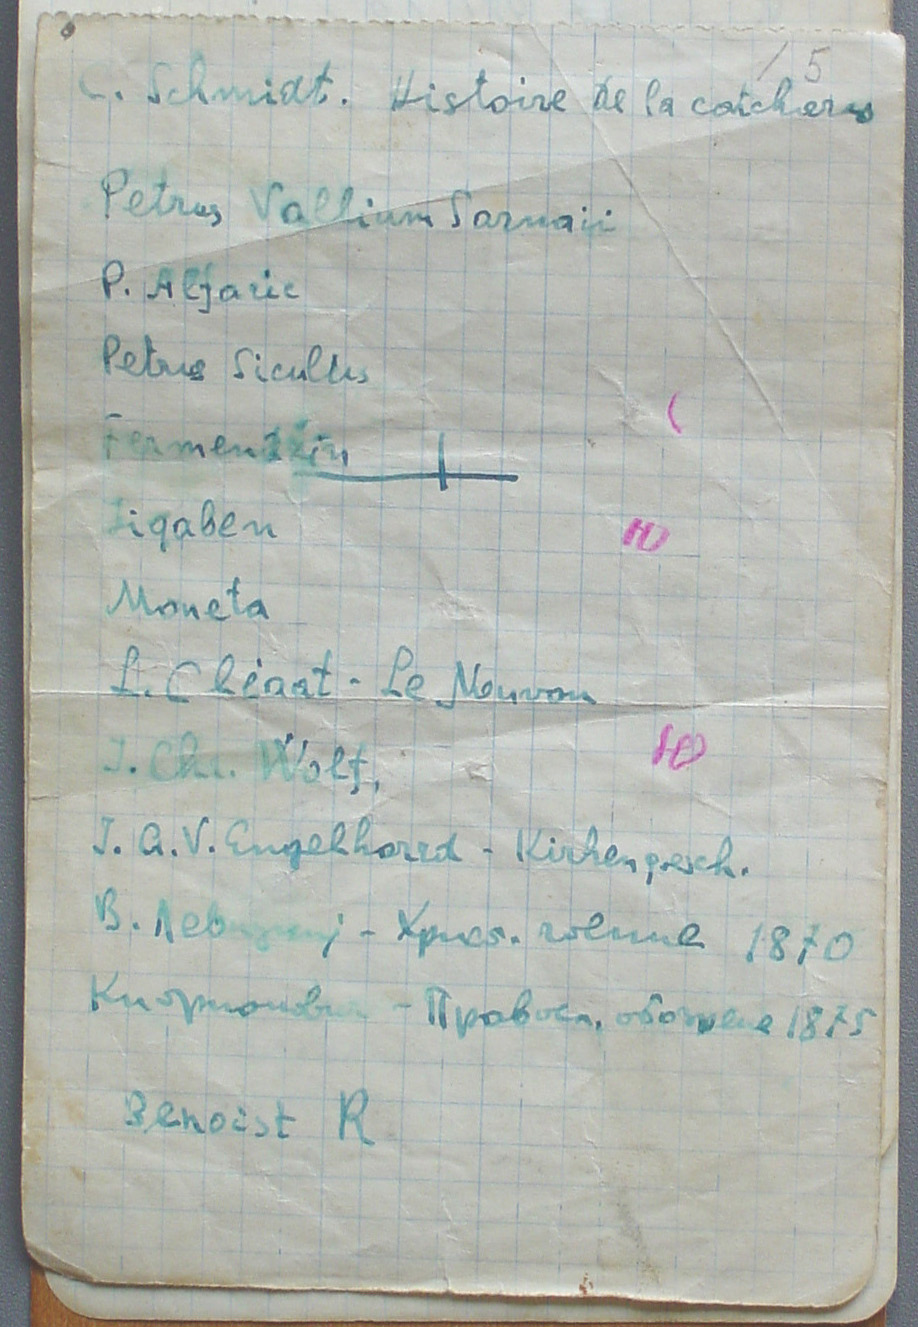 15
C. Schmidt. Histoire de la catchares
Petrus Vallium Sarnaii
P. Alfaric
Petrus Sicullus
Fermendžin
Zigaben
Moneta
Ю
L. Cléaat - Le Nouvou
J. Chr. Wolf,
Ю
J. G. V. Engelhard - Kirhengesch.
В. - Хрис. чтение 1870
- Правосл. обозрение 1875
Benoist R